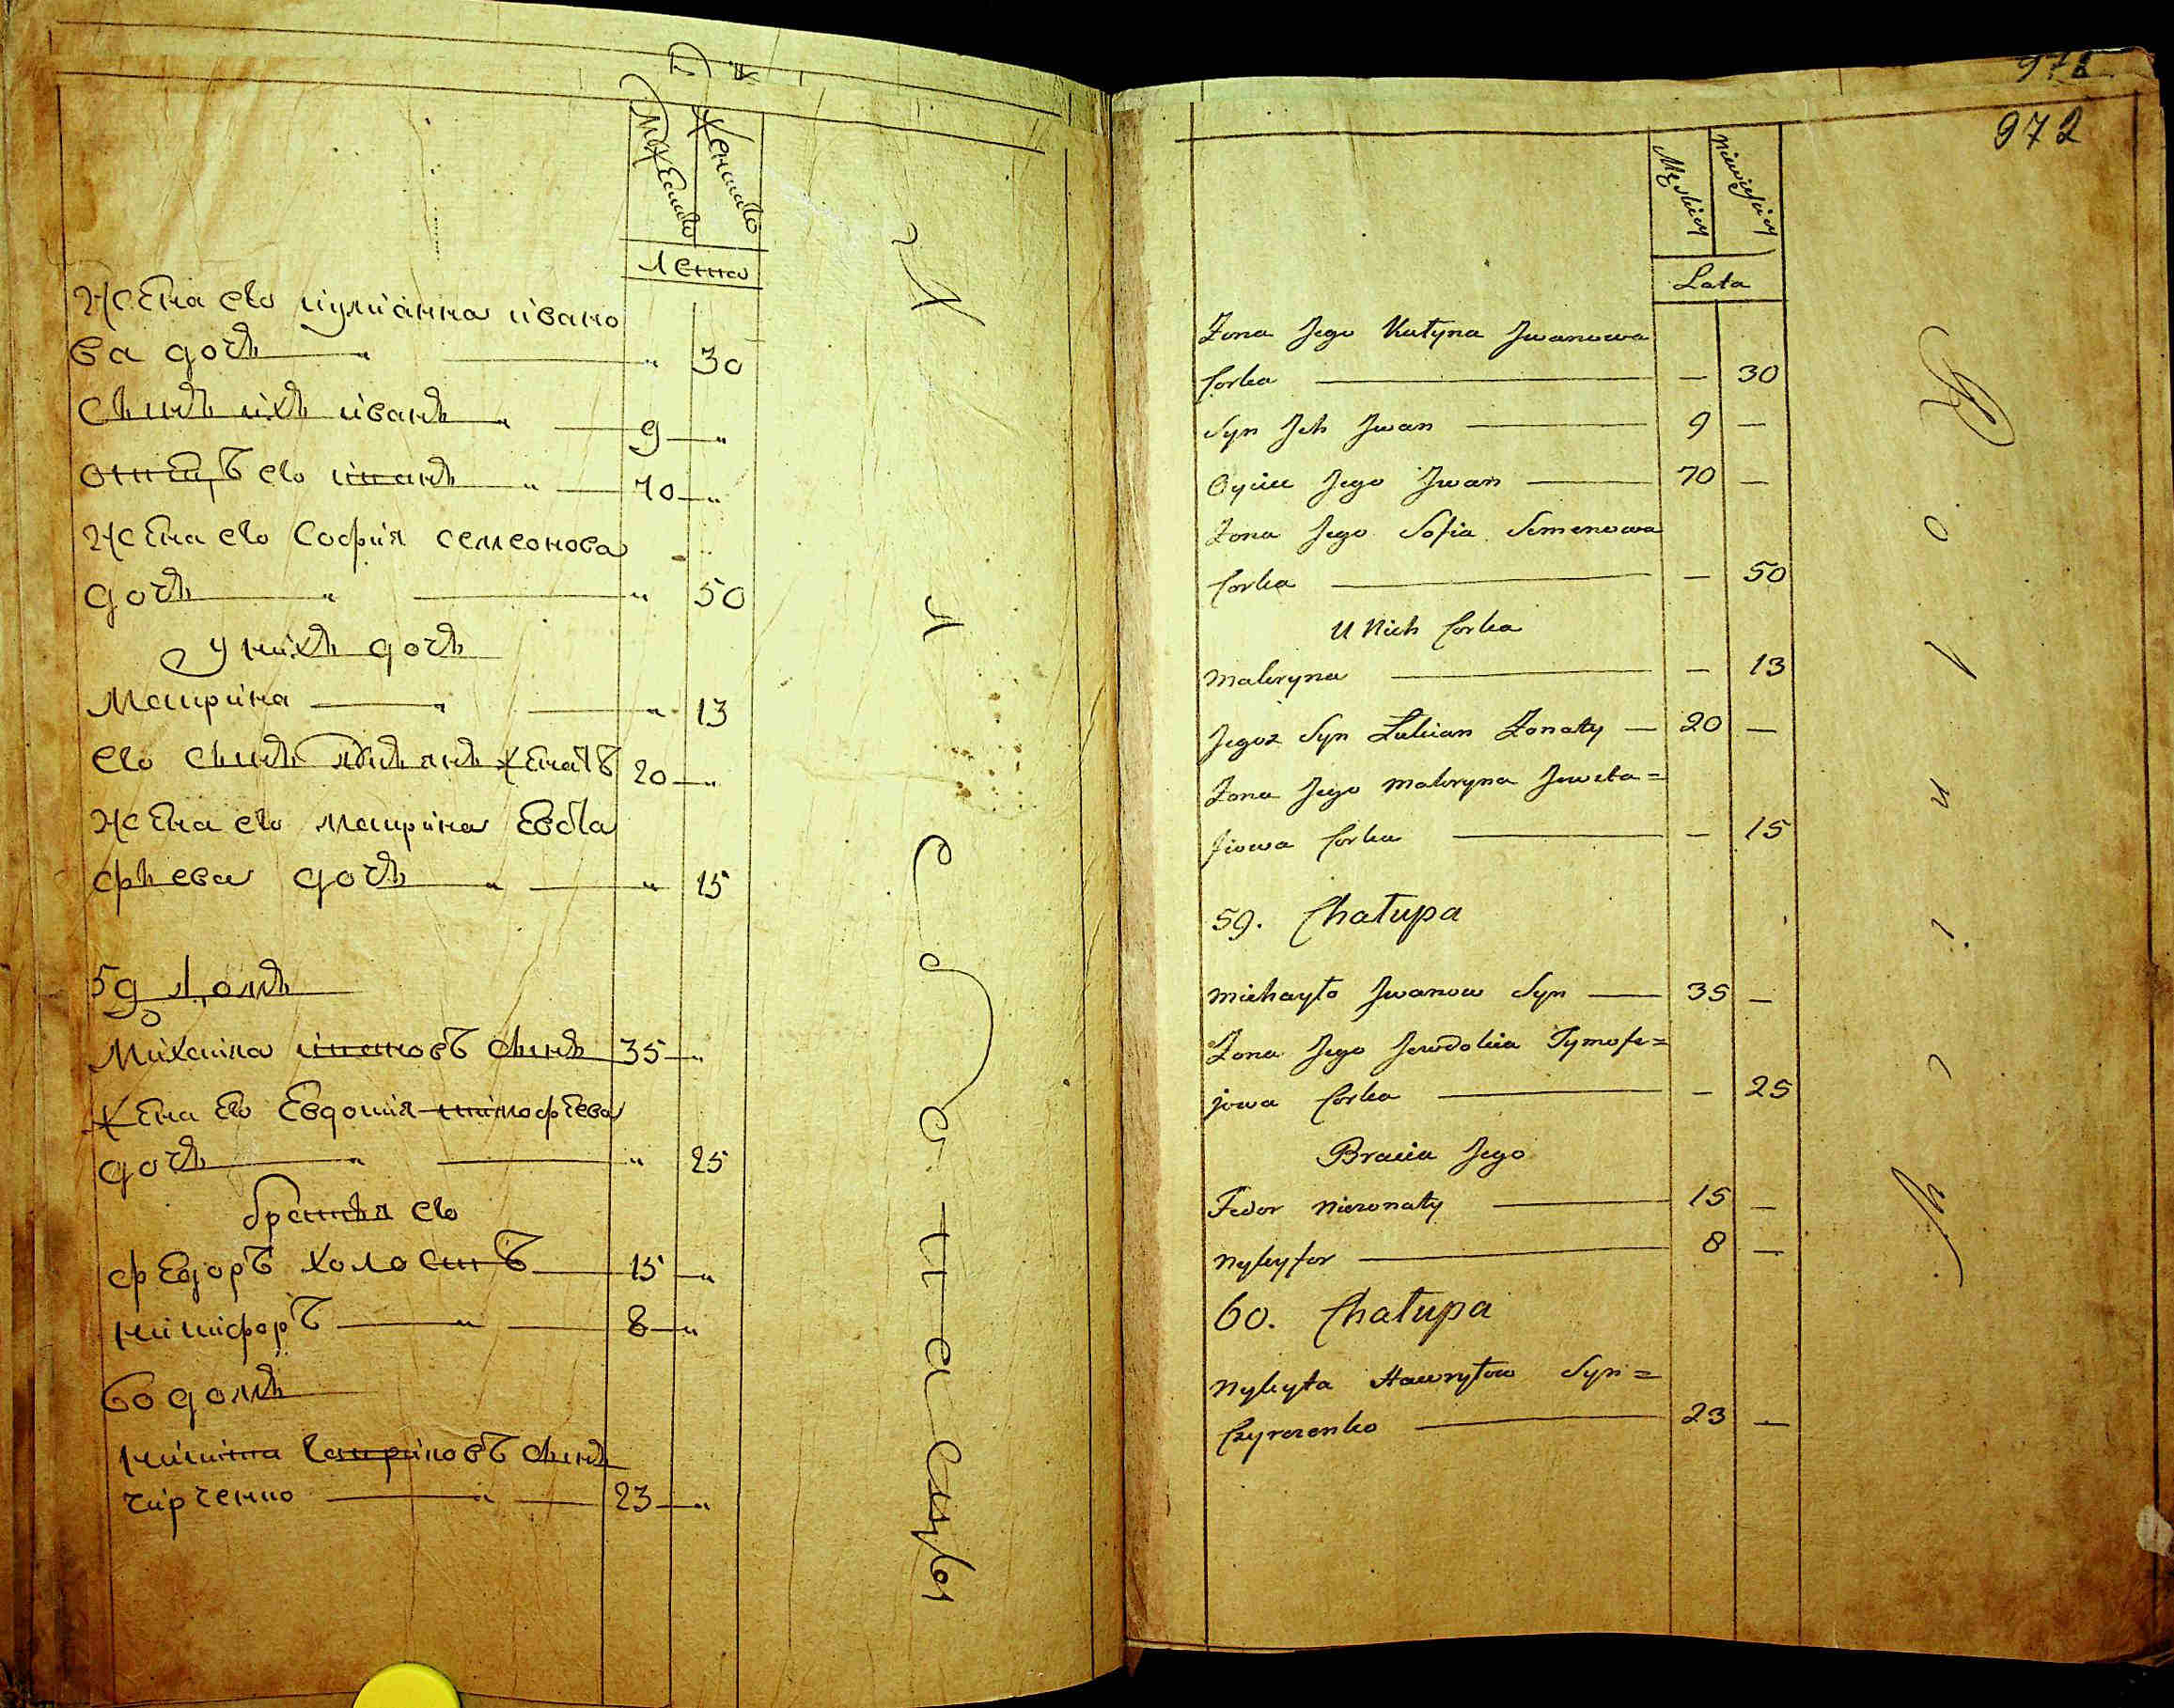 Мужеска
Женска
Лета
Жена его иулианна ивано
ва дочь " " 30
Сынъ ихъ иванъ " 9 "
Отецъ его иванъ " 70 "
Жена его София семенова
дочь " " 50
У нихъ дочь
Макрина " " 13
Его сынъ женатъ 20 "
Жена его макрина Евста
фьева дочь " " 15
59 домъ
Михаила ивановъ сынъ 35 "
Жена Его Евдокия тимофеева
дочь " " 25
братья его
федоръ холостъ 15 "
никифоръ " 8 "
60 домъ
никита гавриловъ сынъ
чирченко " 23 "
972
Męskiey
Niewieściey
Lata
Żona Jego Katyna Jwanowa
Corka — 30
Syn Jch Jwan 9 —
Oyciec Jego Jwan 70 —
Żona Jego Sofia Semenowa
Corka — 50
U Nich Corka
Makryna — 13
Jegoż Syn Łukian Żonaty — 20 —
Żona Jego Makryna Jewsta=
fiowa Corka — 15
59. Chałupa
Michayło Jwanow Syn — 35 —
Żona Jego Jewdokia Tymofe=
jowa Corka — 25
Bracia Jego
Fedor Nieżonaty 15 —
Nykyfor 8 —
60. Chałupa
Nykyta Hawryłow Syn=
Czyrczenko 23 —